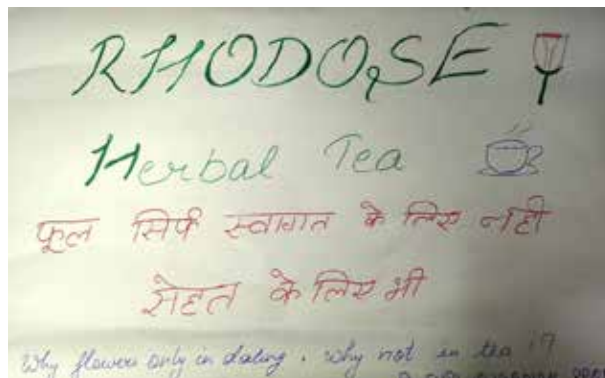 RHODOSE
Herbal Tea
फूल सिर्फ स्वागत के लिए नही
सेहत के लिए भी
Why flowers only in dating, why not in tea !?